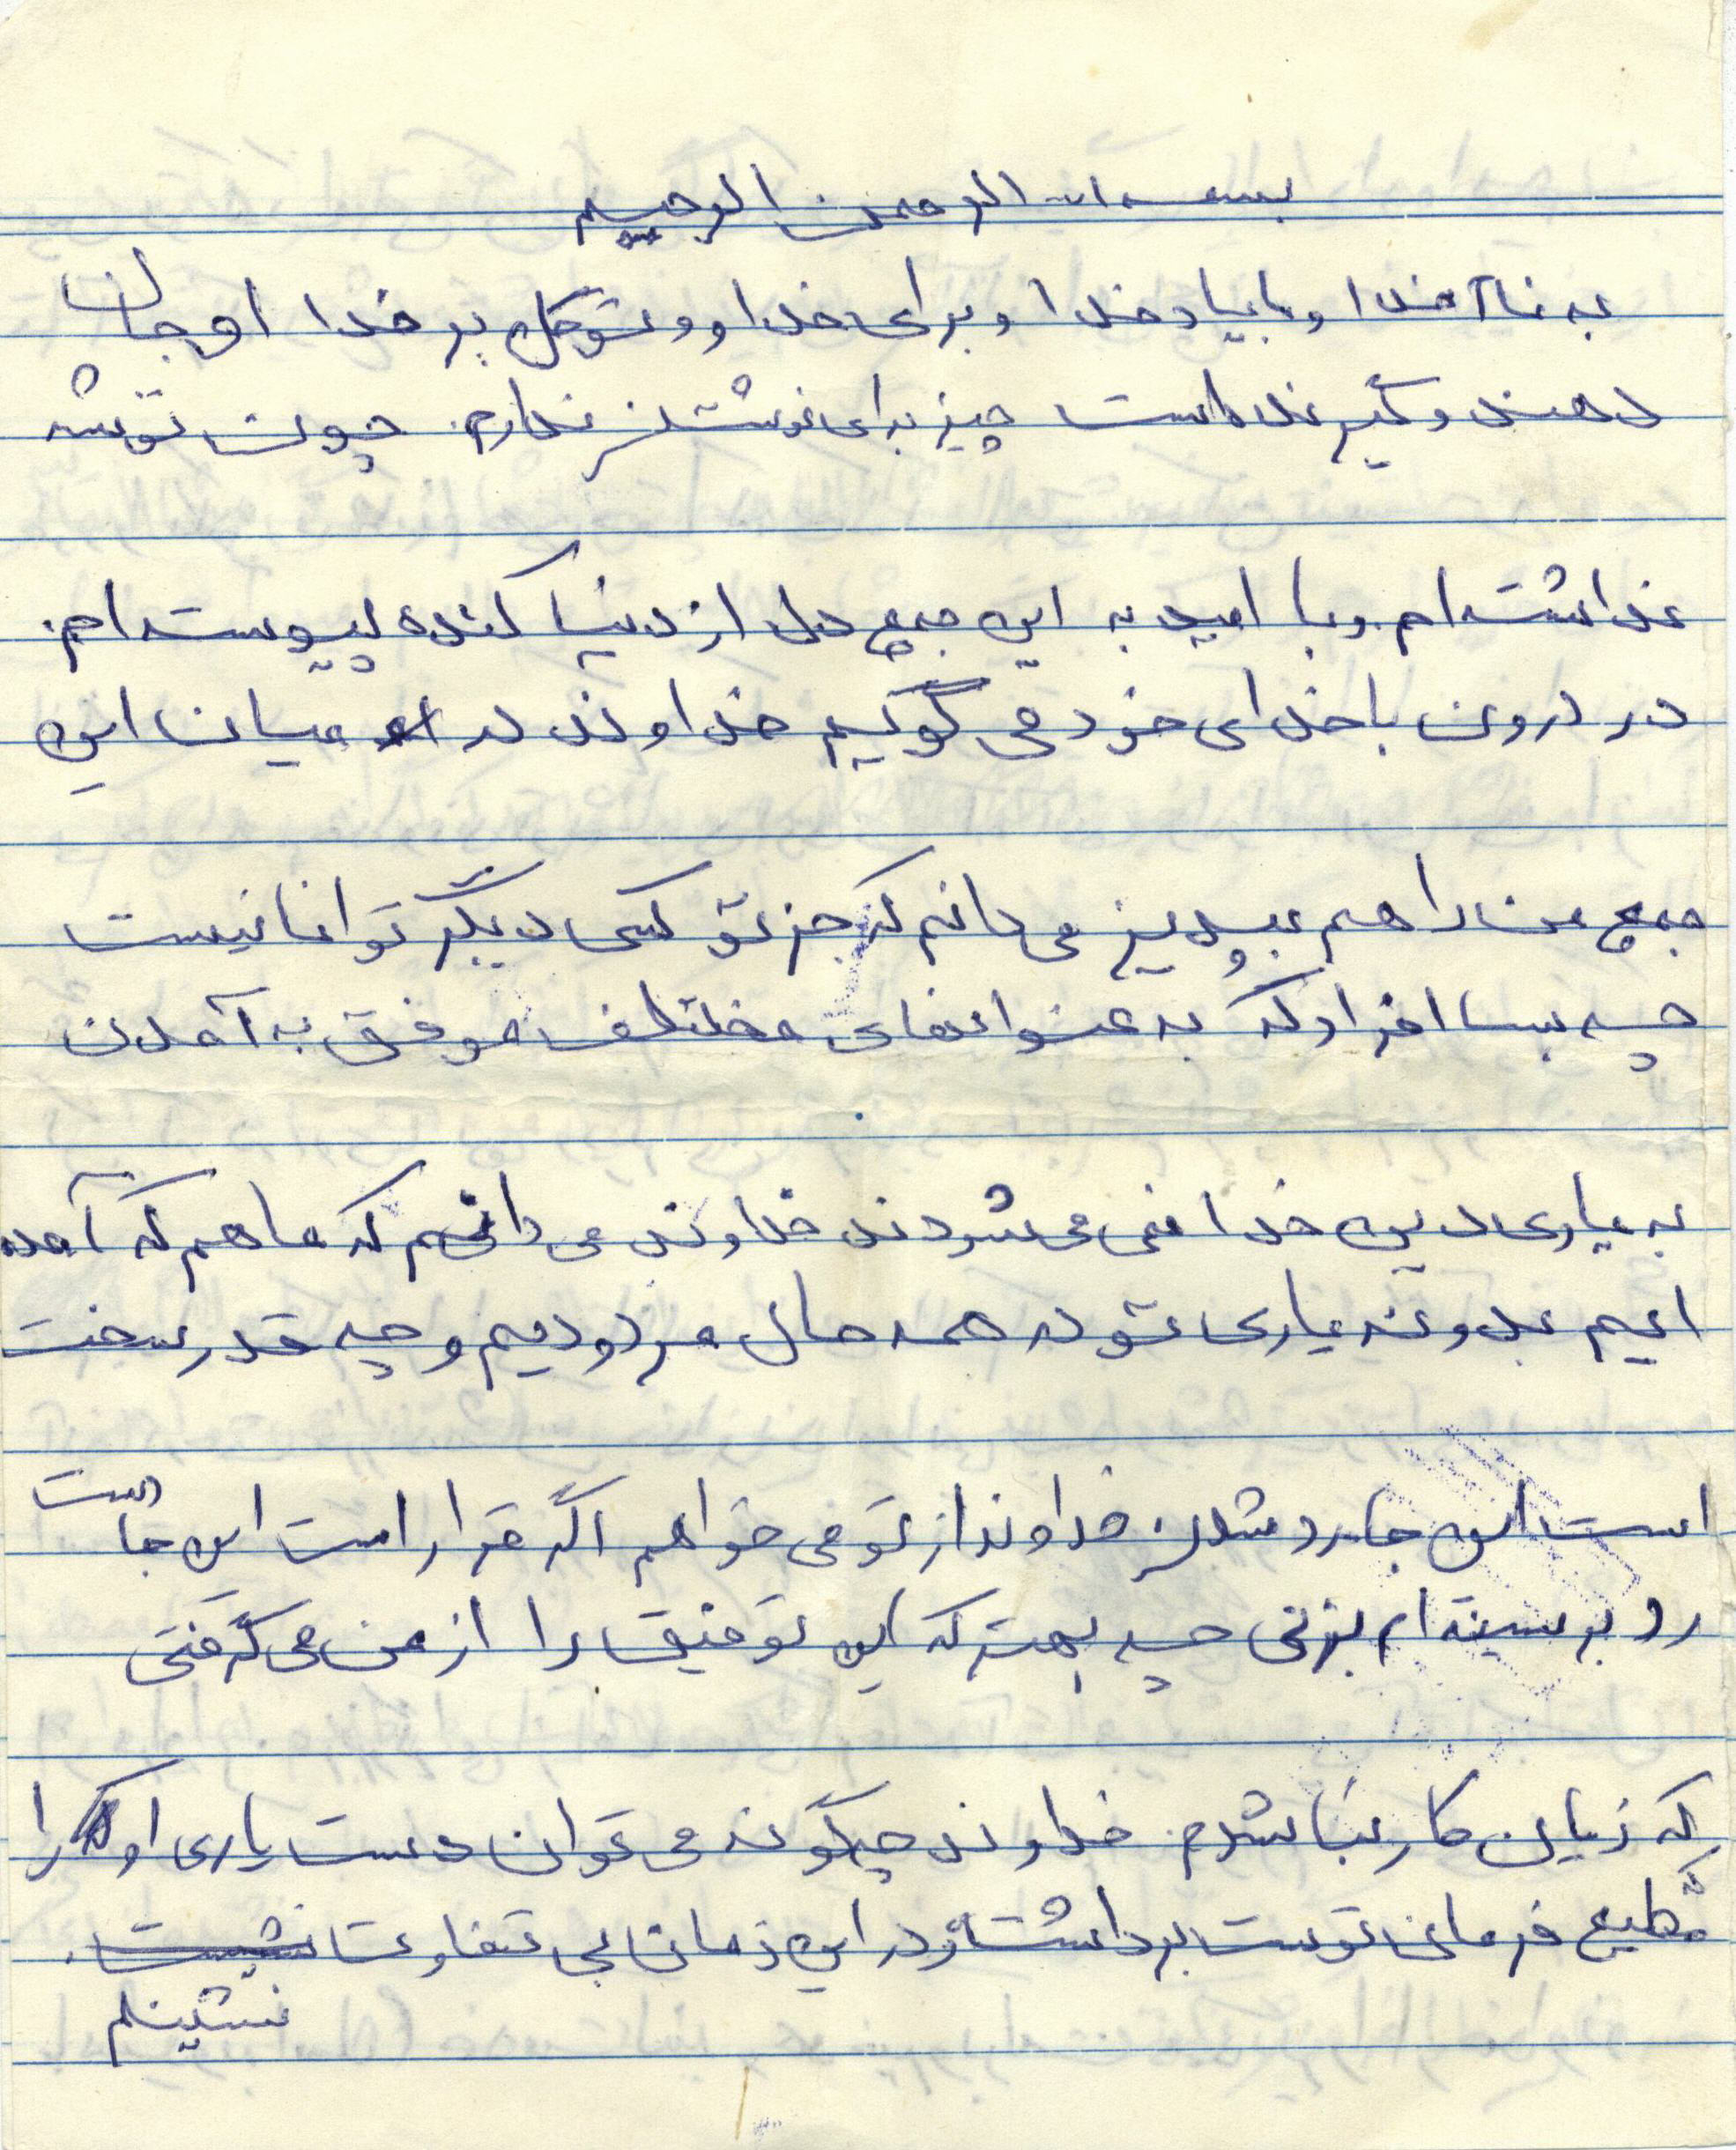 بسم الله الرحمن الرحیم
به نام خدا و با یاد خدا و برای خدا و و توکل بر خدا او جان
دهنده و گیرنده است چیز برای نوشتن ندارم. چون توشه
نداشته‌ام. و با امید به این جمع دل از دنیا کنده پیوسته‌ام.
در درون با خدای خود می گویم خداوند در میان این
جمع من را هم بپذیر می دانم که جز تو کسی دیگر توانا نیست
چه بسا افراد که به عنوانهای مختلف موفق به آمدن
به یاری دین خدا نمی می شودند خداوند می دانیم که ما هم که آمده
ایم بدون یاری تو در همه حال مردودیم و چه قدر سخت
است این جا رد شدن. خداوندا از تو می خواهم اگر قرار است این جا دست
رد به سینه ام بزنی چه بهتر که این توفیق را از من می گرفتی
که زیاین کار نباشم. خداوند چگونه می توان دست یاری او را
مطیع فرمان توست برداشت و در این زمان بی تفاوت نشست.
نشینم